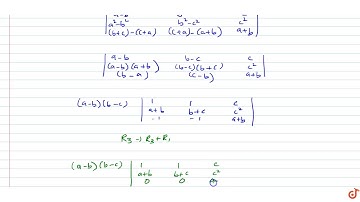 a-b b-c c
a²-b² b²-c² c²
(b+c)-(c+a) (c+a)-(a+b) a+b
a-b b-c c
(a-b)(a+b) (b-c)(b+c) c²
(b-a) (c-b) a+b
(a-b)(b-c) | 1 1 c |
a+b b+c c²
-1 -1 a+b
R₃ → R₃ + R₁
(a-b)(b-c) | 1 1 c
a+b b+c c²
0 0